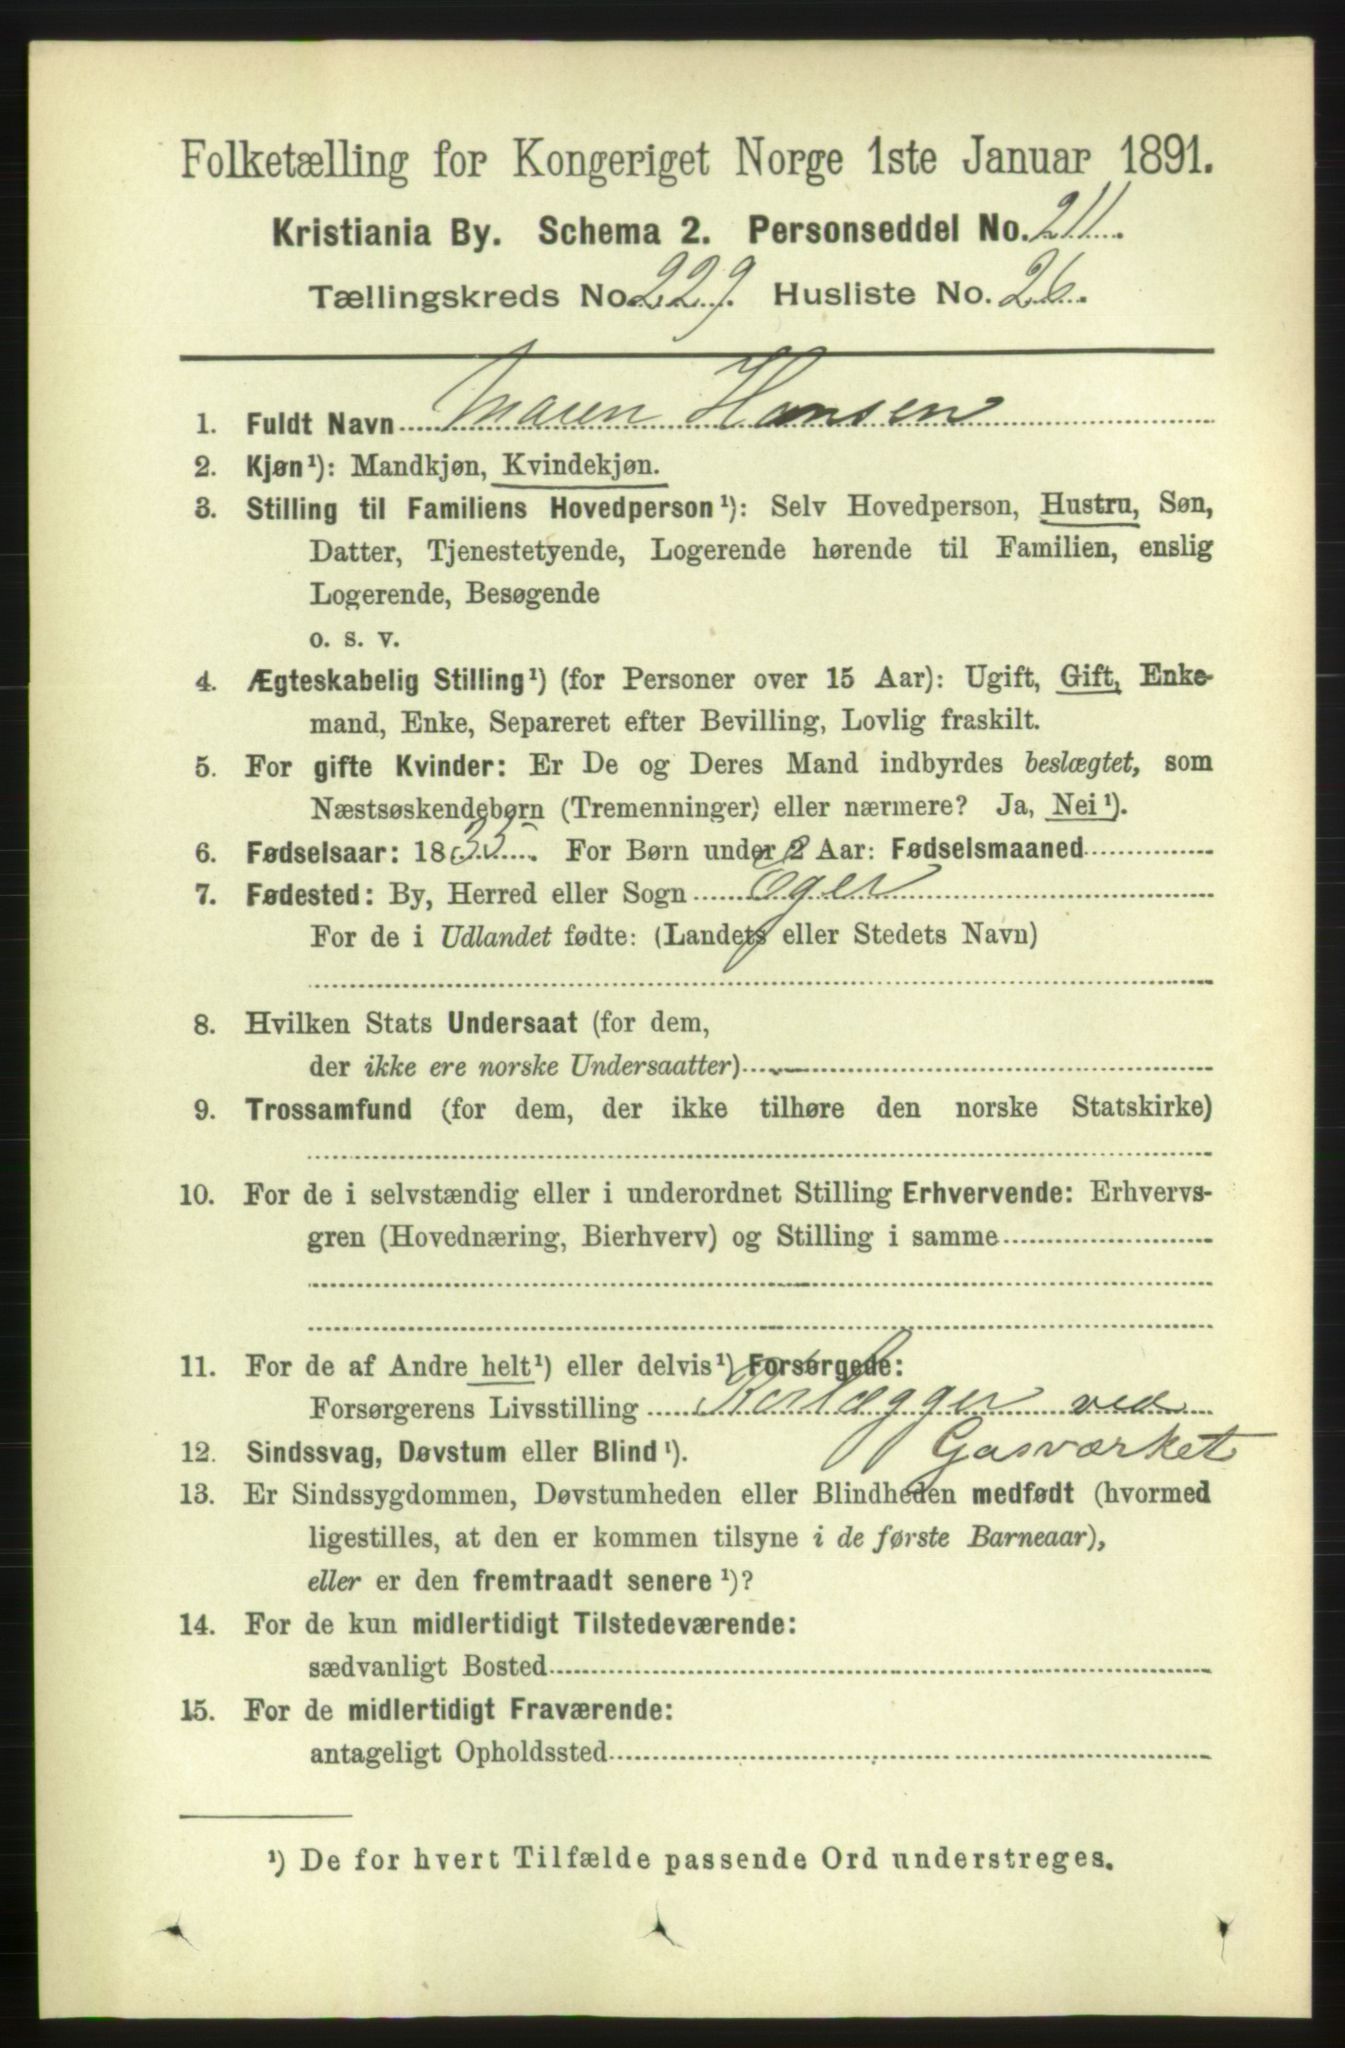 Folketælling for Kongeriget Norge 1ste Januar 1891.
Kristiania By. Schema 2. Personseddel No. 211.
Tællingskreds No. 229. Husliste No. 26.
1. Fuldt Navn Maren Hansen
2. Kjøn¹): Mandkjøn, Kvindekjøn.
3. Stilling til Familiens Hovedperson¹): Selv Hovedperson, Hustru, Søn,
Datter, Tjenestetyende, Logerende hørende til Familien, enslig
Logerende, Besøgende
o. s. v.
4. Ægteskabelig Stilling¹) (for Personer over 15 Aar): Ugift, Gift, Enke-
mand, Enke, Separeret efter Bevilling, Lovlig fraskilt.
5. For gifte Kvinder: Er De og Deres Mand indbyrdes beslægtet, som
Næstsøskendebørn (Tremenninger) eller nærmere? Ja, Nei¹).
6. Fødselsaar: 18 For Børn under 2 Aar: Fødselsmaaned
7. Fødested: By, Herred eller Sogn Eger
For de i Udlandet fødte: (Landets eller Stedets Navn)
8. Hvilken Stats Undersaat (for dem,
der ikke ere norske Undersaatter)
9. Trossamfund (for dem, der ikke tilhøre den norske Statskirke)
10. For de i selvstændig eller i underordnet Stilling Erhvervende: Erhvervs-
gren (Hovednæring, Bierhverv) og Stilling i samme
11. For de af Andre helt¹) eller delvis¹) Forsørgede:
Forsørgerens Livsstilling Rørlægger ved
Gasværket
12. Sindssvag, Døvstum eller Blind¹).
13. Er Sindssygdommen, Døvstumheden eller Blindheden medfødt (hvormed
ligestilles, at den er kommen tilsyne i de første Barneaar),
eller er den fremtraadt senere¹)?
14. For de kun midlertidigt Tilstedeværende:
sædvanligt Bosted
15. For de midlertidigt Fraværende:
antageligt Opholdssted
¹) De for hvert Tilfælde passende Ord understreges.